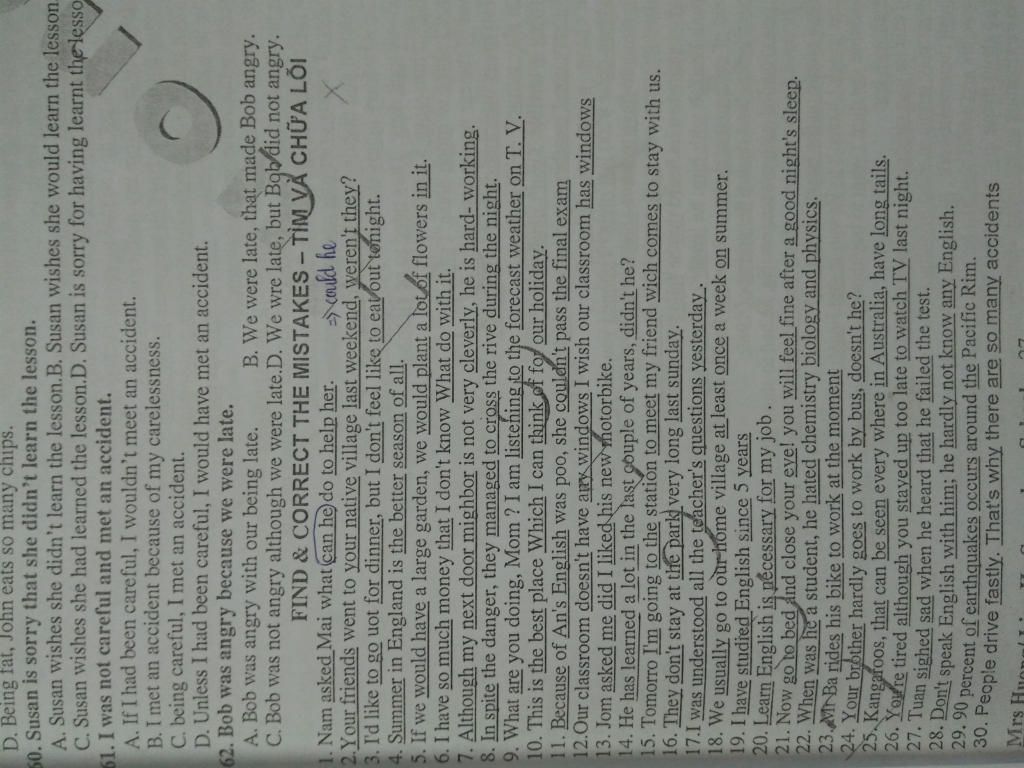 D. Being fat, John eats so many chips.
60. Susan is sorry that she didn't learn the lesson.
A. Susan wishes she didn't learn the lesson.B. Susan wishes she would learn the lesson.
C. Susan wishes she had learned the lesson.D. Susan is sorry for having learnt the lesso
61. I was not careful and met an accident.
A. If I had been careful, I wouldn't meet an accident.
B. I met an accident because of my carelessness.
C. being careful, I met an accident.
D. Unless I had been careful, I would have met an accident.
62. Bob was angry because we were late.
A. Bob was angry with our being late. B. We were late, that made Bob angry.
C. Bob was not angry although we were late.D. We wre late, but Bob did not angry.
FIND & CORRECT THE MISTAKES – TÌM VÀ CHỮA LỖI
⇒ could he
1. Nam asked Mai what can he do to help her.
2. Your friends went to your naive village last weekend, weren't they?
3. I'd like to go uot for dinner, but I don't feel like to eat out tonight.
4. Summer in England is the better season of all.
5. If we would have a large garden, we would plant a lot of flowers in it.
6. I have so much money that I don't know What do with it.
7. Although my next door mighbor is not very cleverly, he is hard- working.
8. In spite the danger, they managed to cross the rive during the night.
9. What are you doing, Mom ? I am listening to the forecast weather on T. V.
10. This is the best place Which I can think of for our holiday.
11. Because of An's English was poo, she couldn't pass the final exam
12.Our classroom doesn't have any windows I wish our classroom has windows
13. Jom asked me did I liked his new motorbike.
14. He has learned a lot in the last couple of years, didn't he?
15. Tomorro I'm going to the station to meet my friend wich comes to stay with us.
16. They don't stay at the park very long last sunday.
17.I was understood all the teacher's questions yesterday .
18. We usually go to our home village at least once a week on summer.
19. I have studied English since 5 years
20. Learn English is necessary for my job .
21. Now go to bed and close your eye! you will feel fine after a good night's sleep.
22. When was he a student, he hated chemistry biology and physics.
23. Mr Ba rides his bike to work at the moment
24. Your brother hardly goes to work by bus, doesn't he?
25. Kangaroos, that can be seen every where in Australia, have long tails.
26. You're tired although you stayed up too late to watch TV last night.
27. Tuan sighed sad when he heard that he failed the test.
28. Don't speak English with him; he hardly not know any English.
29. 90 percent of earthquakes occurs around the Pacific Rim.
30. People drive fastly. That's why there are so many accidents
Mrs